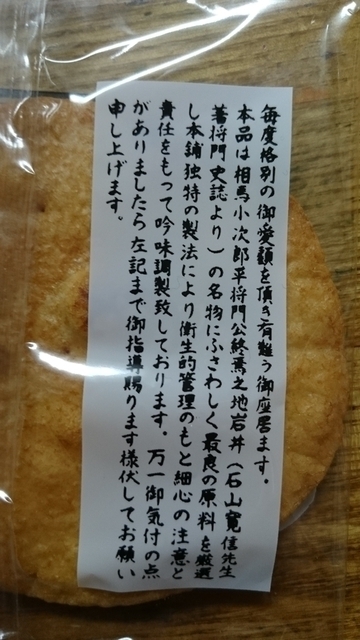 毎度格別の御愛顧を頂き有難う御座居ます。
本品は相馬小次郎平将門公終焉之地岩井(石山寛信先生
著将門史誌より)の名物にふさわしく最良の原料を厳選
し本舗独特の製法により衛生的管理のもと細心の注意と
責任をもって吟味調製致しております。万一御気付の点
がありましたら左記まで御指導賜ります様伏してお願い
申し上げます。